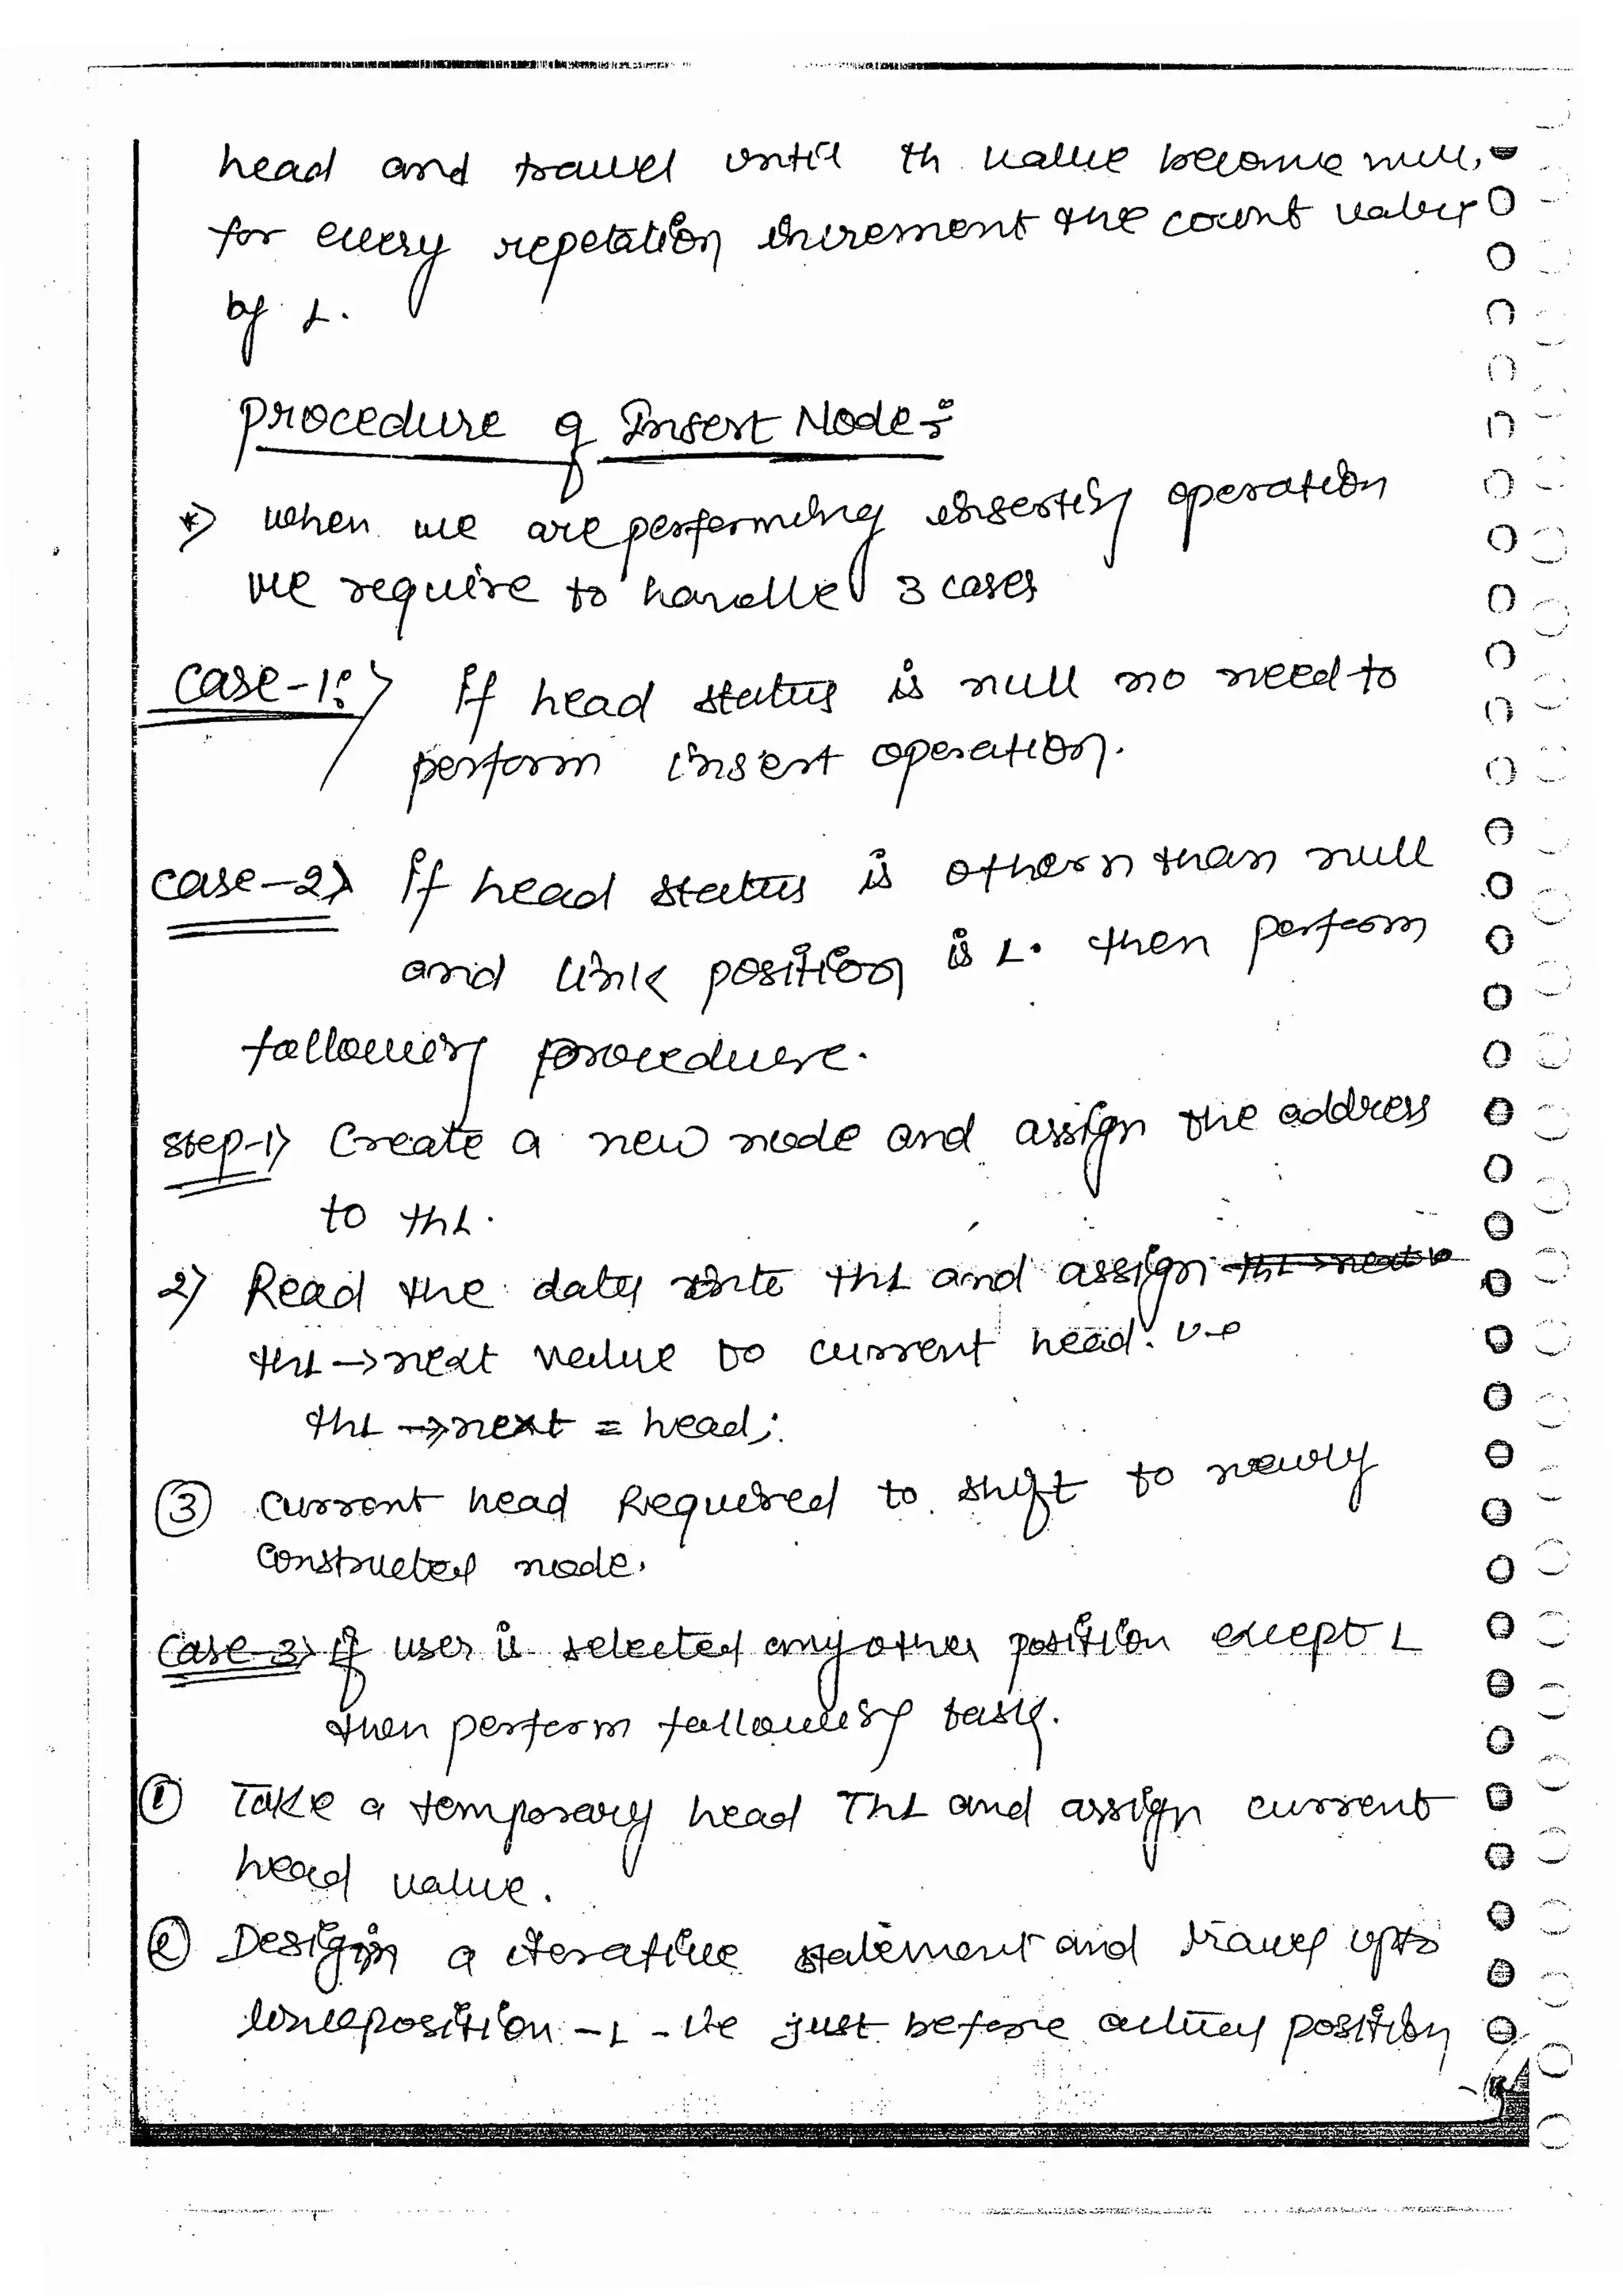 head and travel until th value become null,
for every repetation increment the count value
by 1.
procedure of Insert Node:-
*) when we are performing inserting operation
we require to handle 3 cases
case-1:> if head status is null no need to
perform insert operation.
case-2> if head status is othern than null
and link position is 1. then perform
following procedure.
step-1> Create a new node and assign the address
to th1.
2> Read the data into th1 and assign
th1->next value to current head. i.e
th1->next = head;
③ current head Required to shift to newly
constructed node.
Case-3> if user is selected any other position except 1
then perform following task.
① Take a temporary head Th1 and assign current
head value.
② Design a iterative statement and travel upto
linkposition -1 - i.e just before actual position